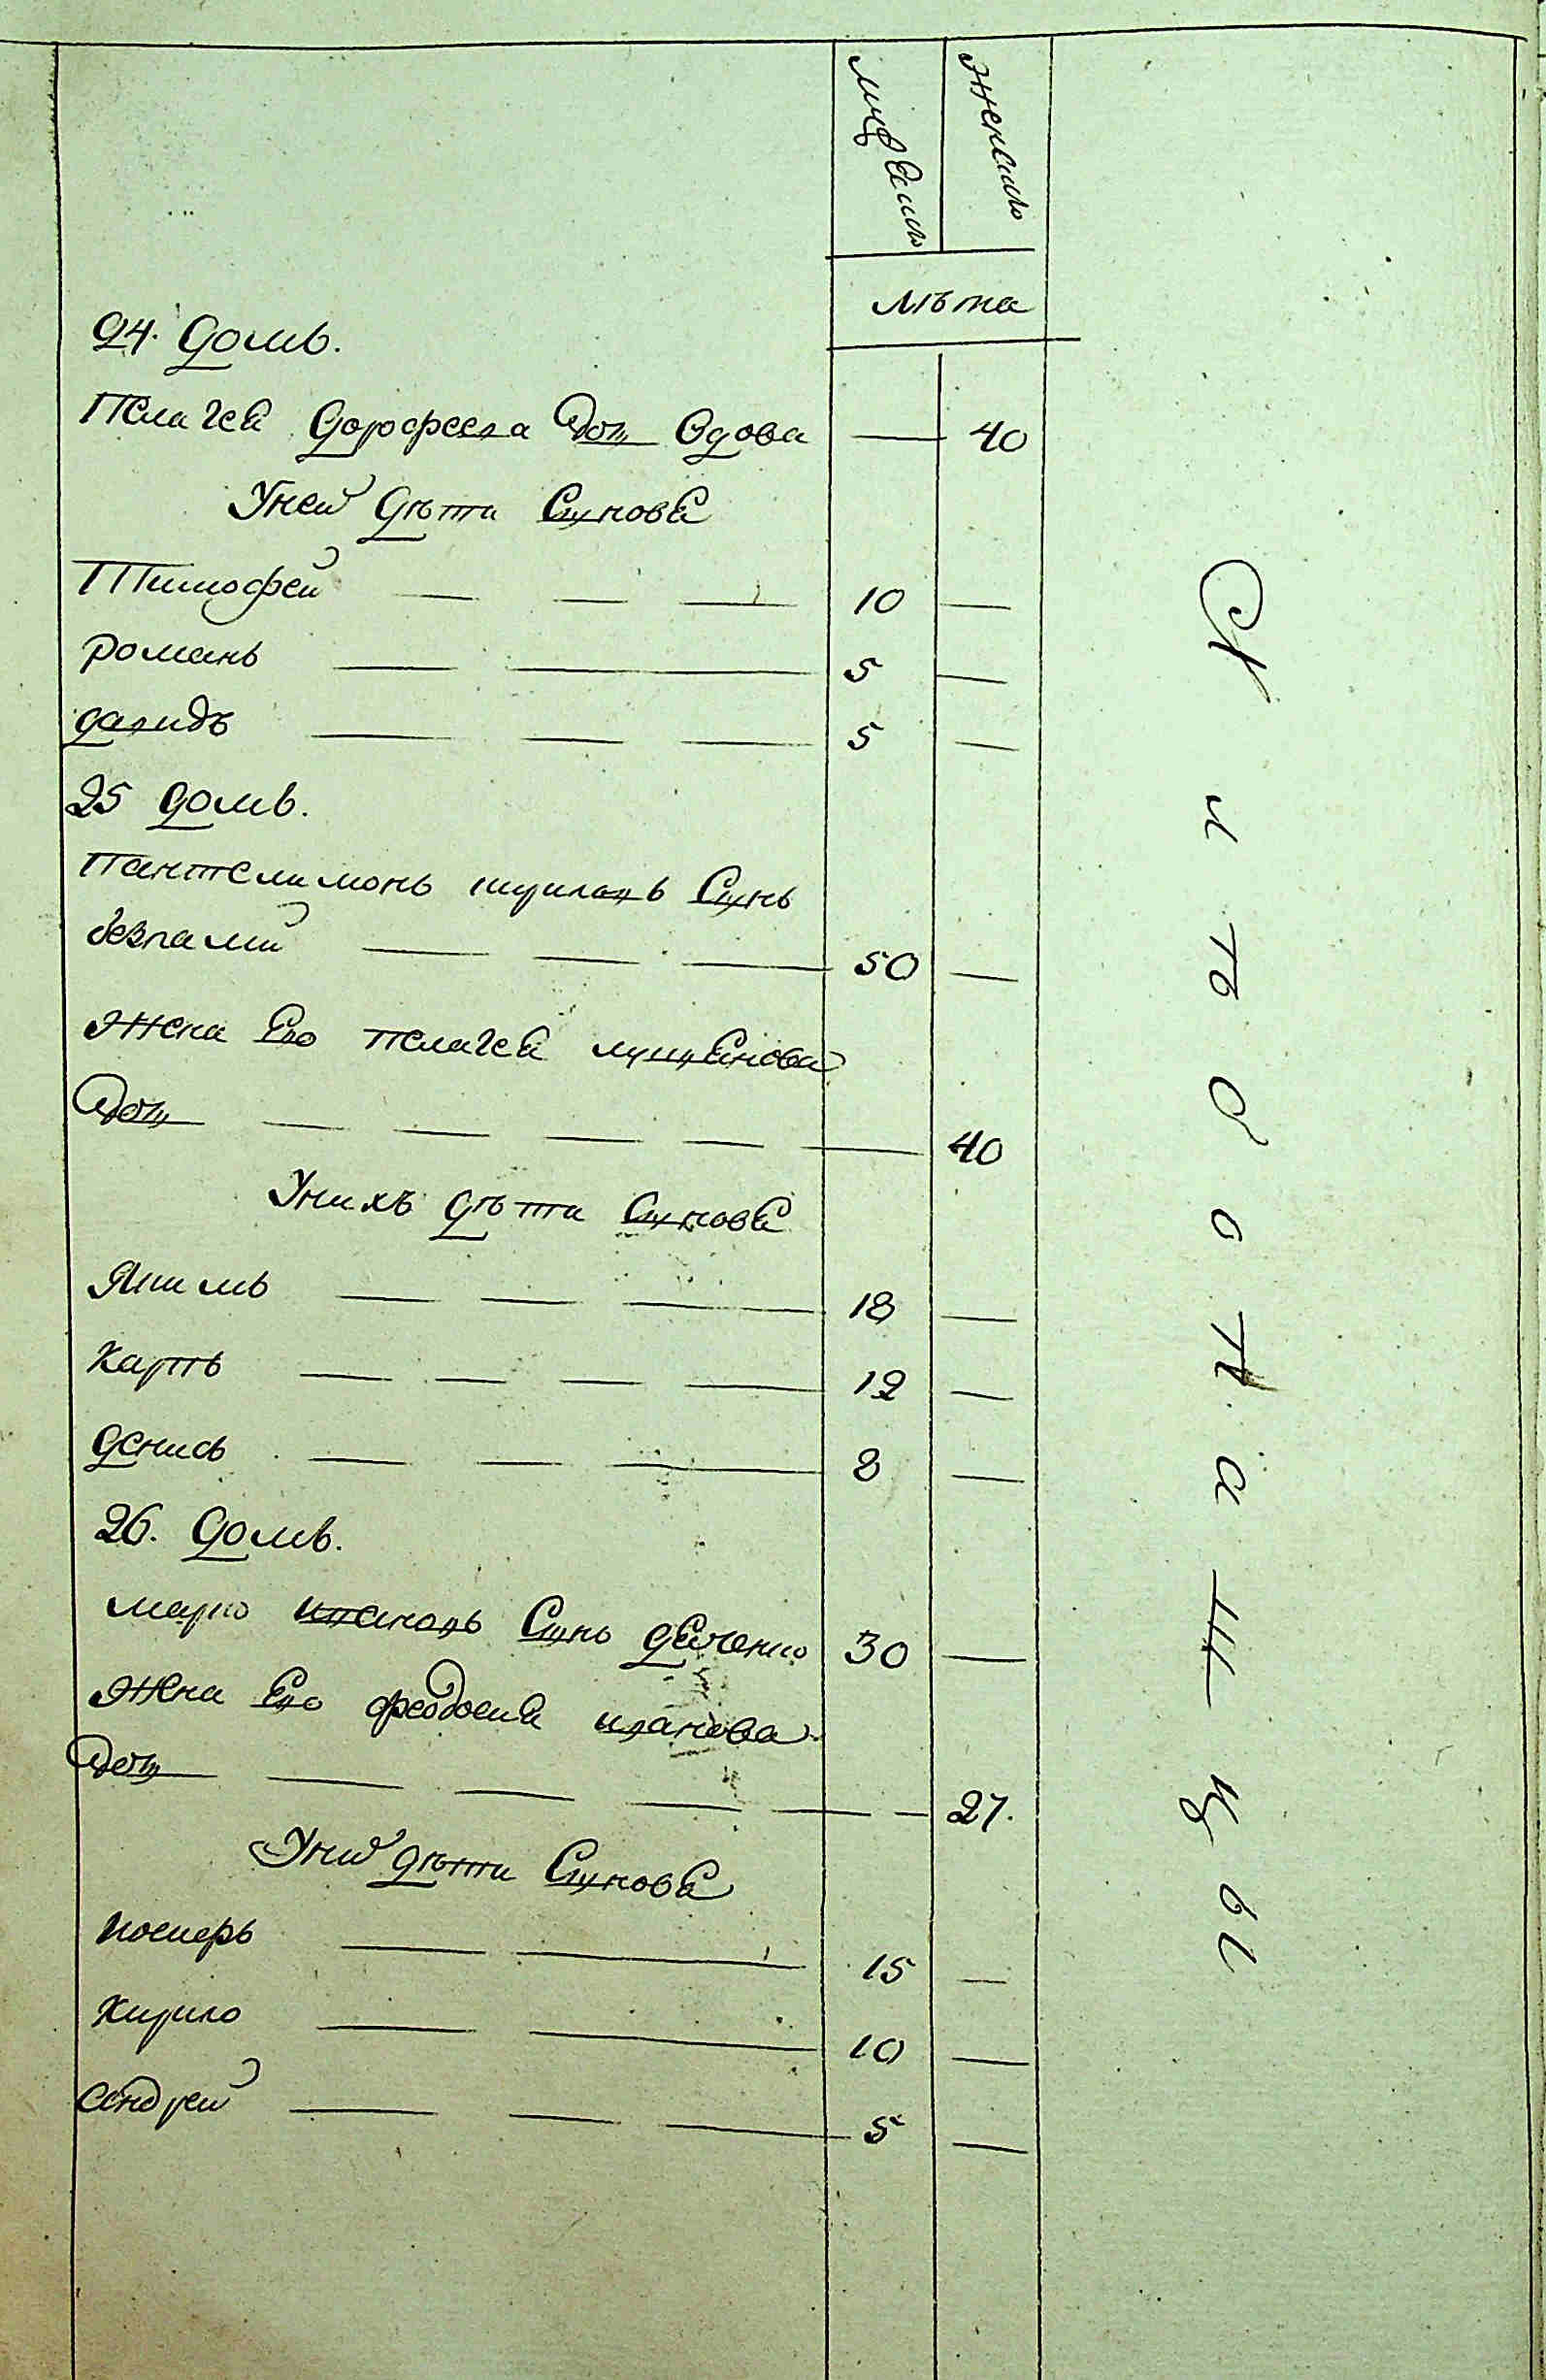 мужеска женска
лѣта
24. домъ.
Пелагея дорофеева дощ вдова — 40
Уней дѣти Сынове
Тимофей — — — 10 —
романъ — — 5 —
давидъ — — — 5 —
25 домъ.
Пантелимонъ Сынъ
— — — 50 —
жена Его пелагея
дощ — — — — — 40
Унихъ дѣти Сынове
Якимъ — — — 18 —
Карпъ — — — — 12 —
денисъ — — — 8 —
26. домъ.
марко степановъ Сынъ 30 —
жена Его феодосия иванова
дощ — — — — — 27.
Уних дѣти Сынове
иосиеръ — — 15 —
Кирило — — 10 —
андрей — — — 5 —